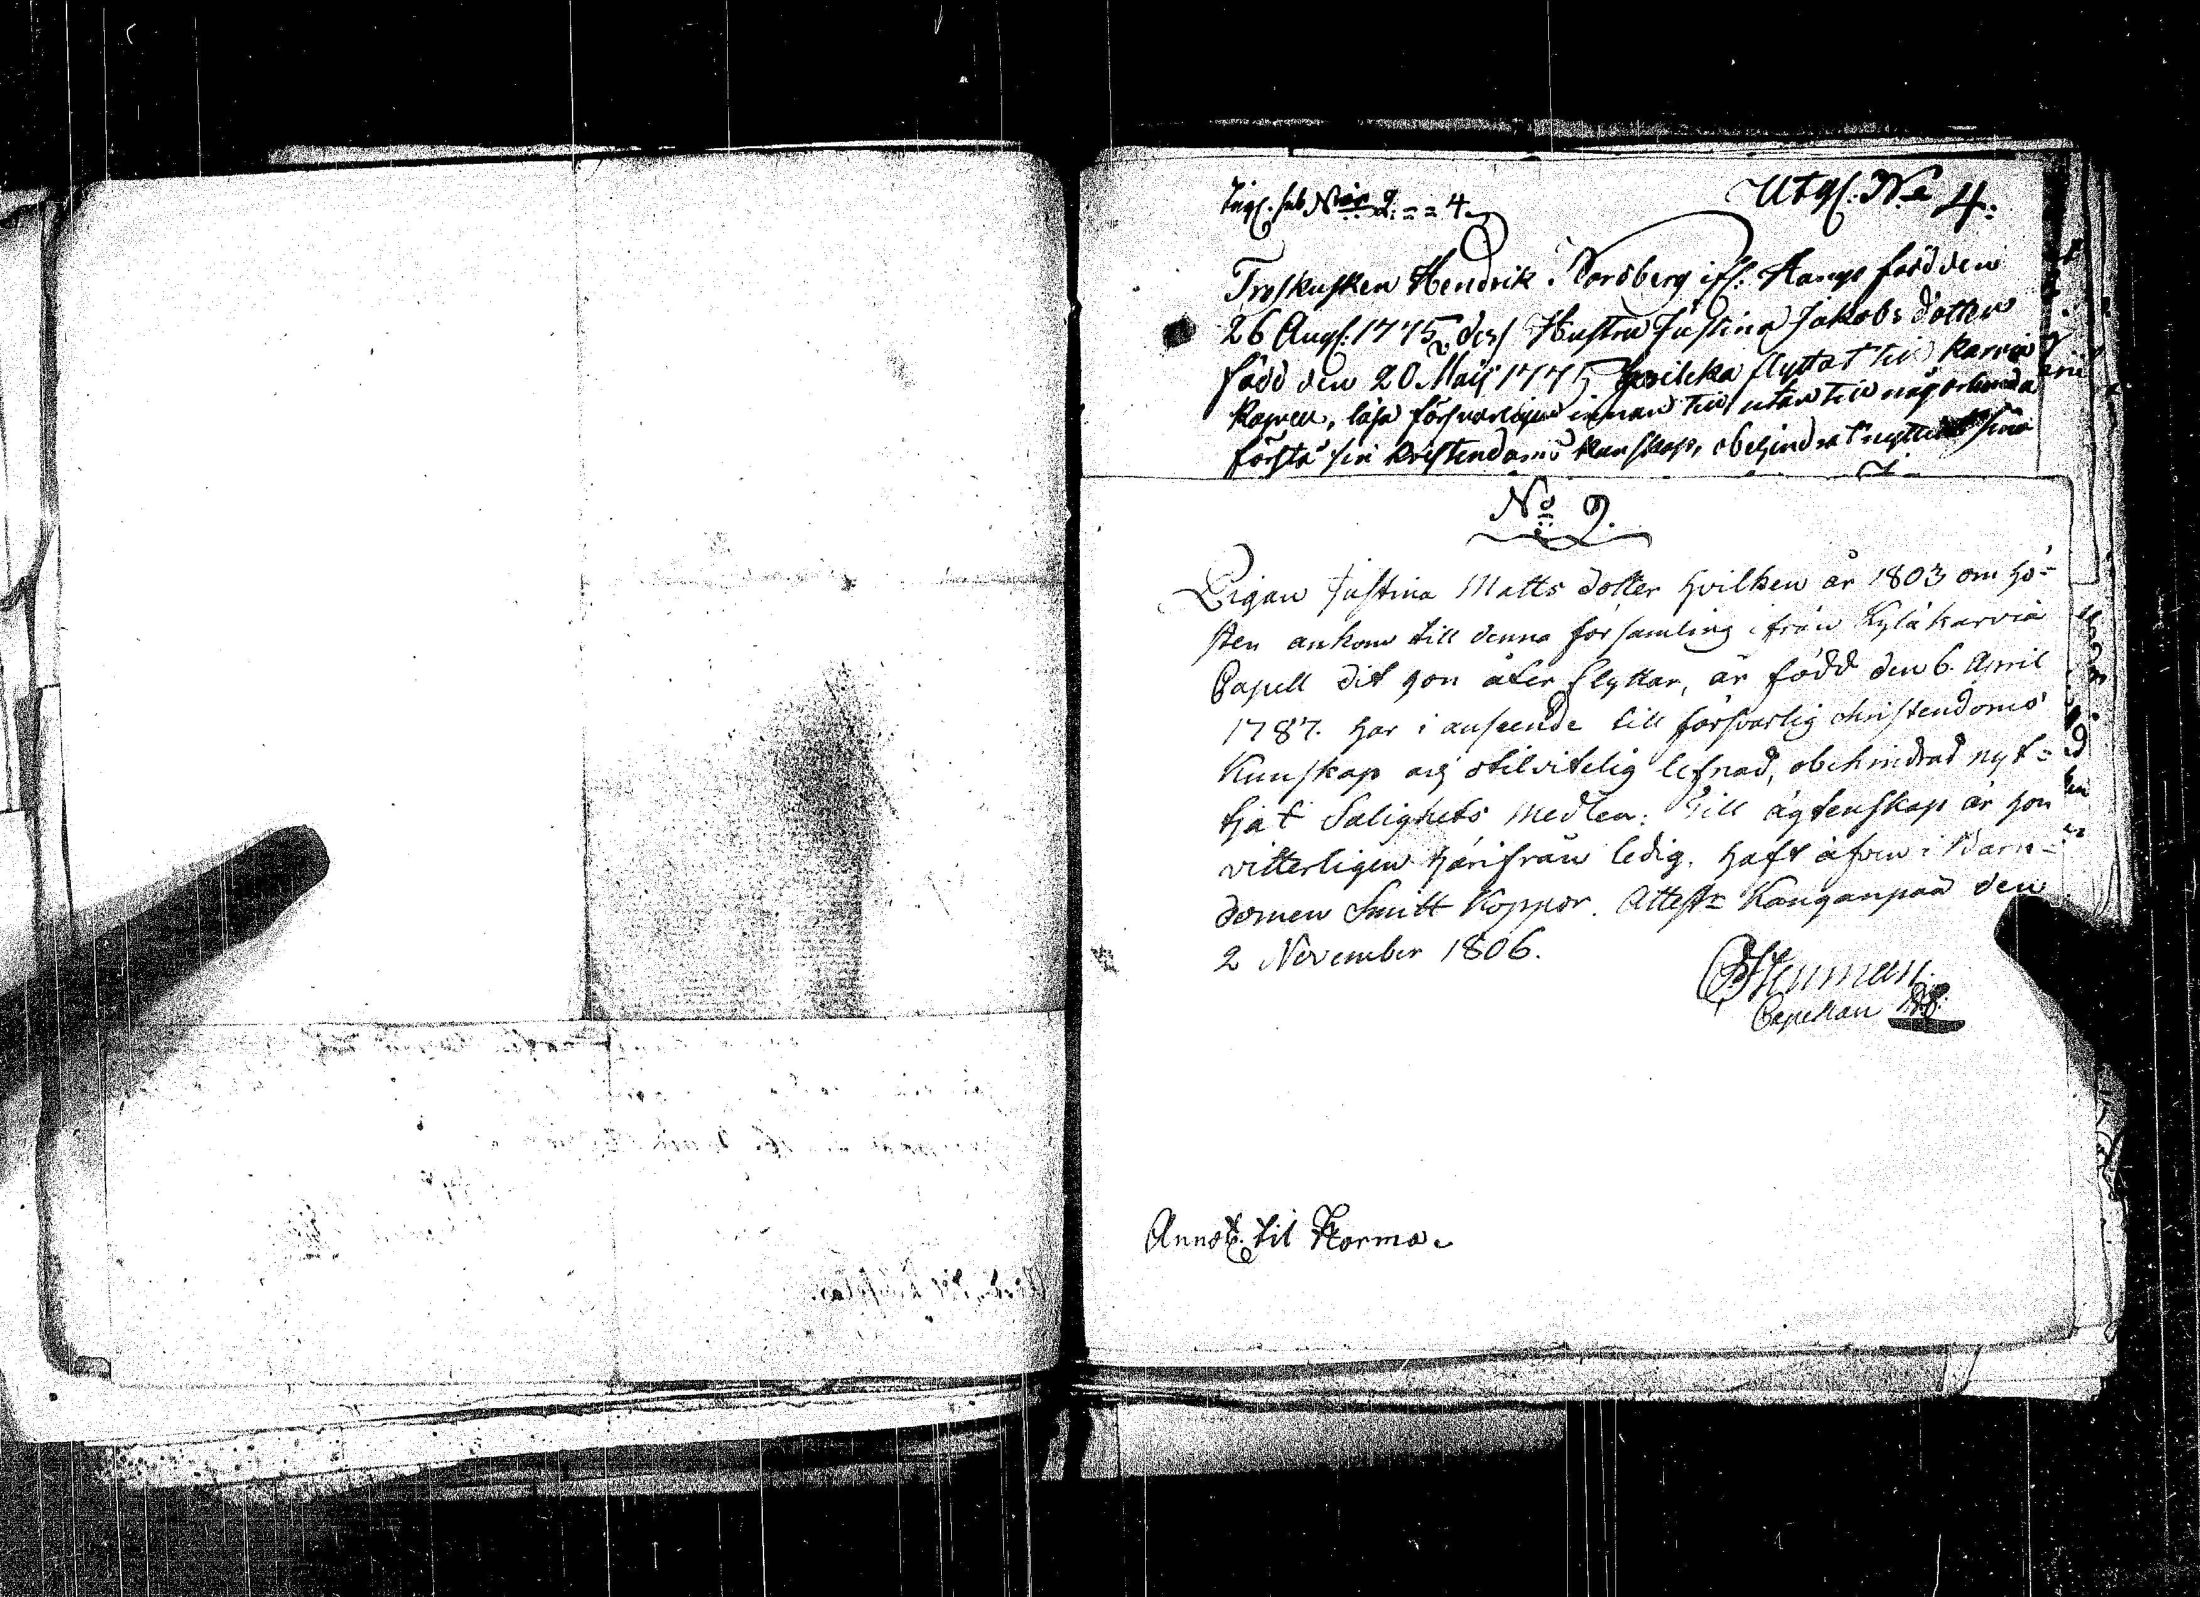 Ingl. sub Nris 2. = = 4.
Utgl: No 4.
Troskusken Hendrik Nordberg ifr: född den
26 Augs: 1775, dess Hustru Justina Jakobs dotter
född den 20 Maij 1775 hvilka flyttat till Karvia
Kapell, läsa försvarligen innan till utan till någorlunda
förstå sin Kristendoms kunskap, obehindrat nyttiat sina
No 2.
Pigan Justina Matts dotter hvilken år 1803 om hö=
sten ankom till denna församling ifrån Kylä karvia
Capell dit hon åter flyttar, är född den 6. April
1787. har i anseende till försvarlig christendoms
Kunskap och otilvitelig lefnad, obehindrad nyt=
tjat Salighets Medlen: Till ägtenskap är hon
vitterligen härifrån ledig. haft äfven i Barn=
domen Smitt Koppor. Attest= Kanganpää den
2 November 1806.
Stenman.
Capellan
Annot. til Storma.